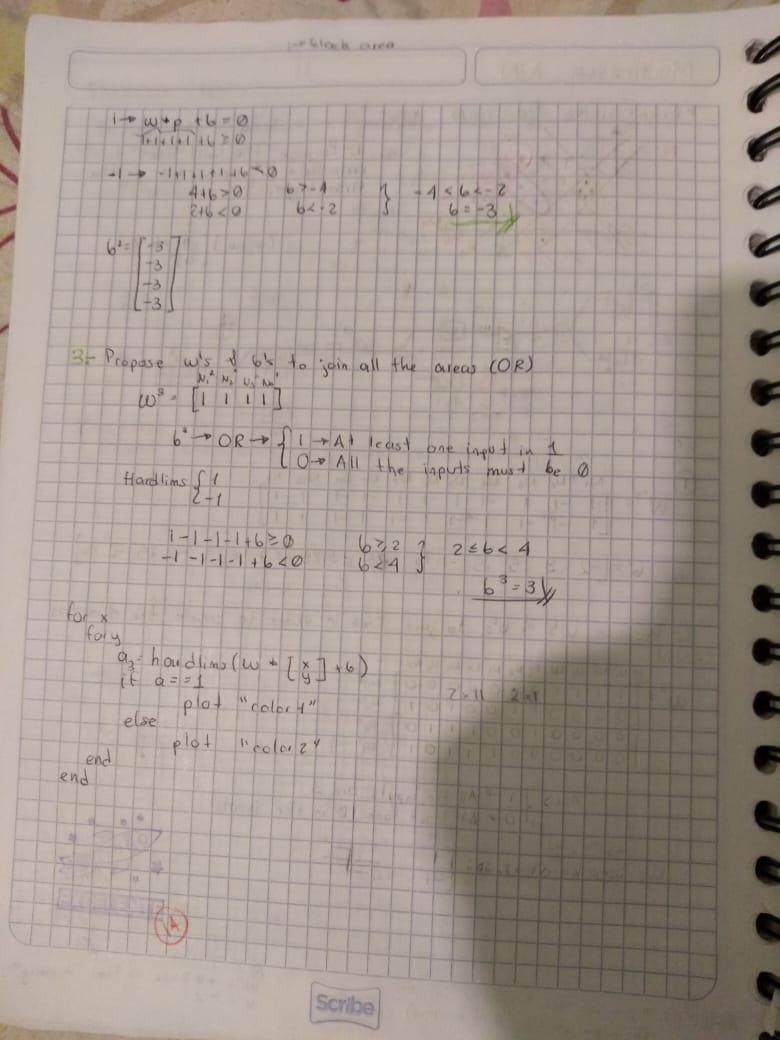 1→ black area
1→ w*p +b=0
1+1+1+1+b≥0
-1→ -1+1+1+1+b<0
4+b>0 b>-4 } -4<b<-2
2+b<0 b<-2 b=-3
b²= [-3
-3
-3
-3]
3.- Propose w's & b's to join all the areas (OR)
w³ = [1 1 1 1]
b³ → OR → { 1 → At least one input in 1
0→ All the inputs must be 0
Hardlims { 1
-1
1-1-1-1+b≥0 b≥2 } 2≤b<4
-1-1-1-1+b<0 b<4
b³=3
for x
for y
a₃=hardlims(w * [x y] +b)
if a==1
plot "color1"
else
plot "color2"
end
end
Scribe